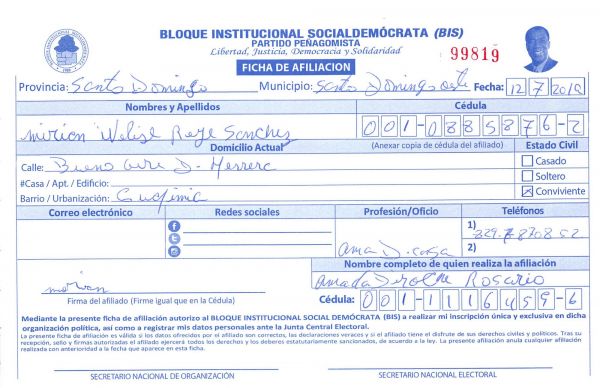 BLOQUE INSTITUCIONAL SOCIALDEMÓCRATA (BIS)
PARTIDO PEÑAGOMISTA
Libertad, Justicia, Democracia y Solidaridad
99819
FICHA DE AFILIACION
Provincia: Santo Domingo Municipio: Santo Domingo este Fecha: 12/7/2018
Nombres y Apellidos Cédula
Sanchez 001-0885876-2
Domicilio Actual (Anexar copia de cédula del afiliado) Estado Civil
Calle: Herrera Casado
#Casa / Apt. / Edificio: Soltero
Barrio / Urbanización: Conviviente
Correo electrónico Redes sociales Profesión/Oficio Teléfonos
1) 829.
Ama D. casa 2)
Nombre completo de quien realiza la afiliación
Rosario
Firma del afiliado (Firme igual que en la Cédula) Cédula: 001-1116459-6
Mediante la presente ficha de afiliación autorizo al BLOQUE INSTITUCIONAL SOCIAL DEMÓCRATA (BIS) a realizar mi inscripción única y exclusiva en dicha
organización política, así como a registrar mis datos personales ante la Junta Central Electoral.
La presente ficha de afiliación es válida si los datos ofrecidos por el afiliado son correctos, las declaraciones veraces y si el afiliado tiene el disfrute de sus derechos civiles y políticos. Tras su
recepción, sello y firmas autorizadas el afiliado ejercerá todos los derechos y los deberes estatutariamente sancionados, de acuerdo a la ley. La presente afiliación anula cualquier afiliación
realizada con anterioridad a la fecha que aparece en esta ficha.
SECRETARIO NACIONAL DE ORGANIZACIÓN SECRETARIO NACIONAL ELECTORAL